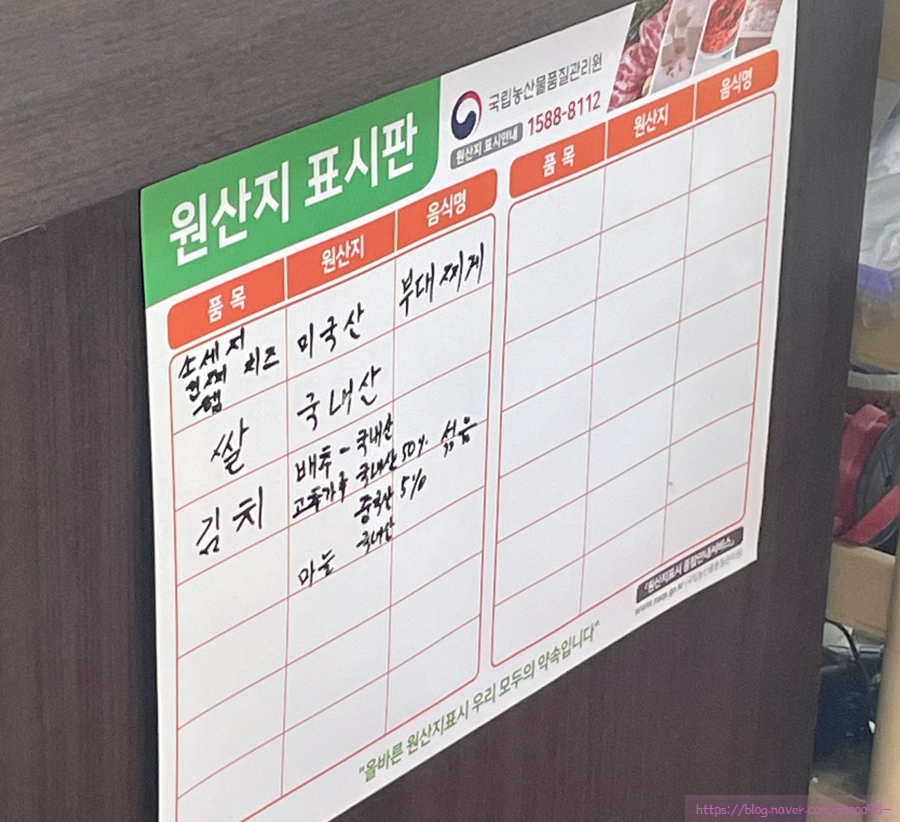 원산지 표시판
국립농산물품질관리원
원산지 표시안내 1588-8112
품 목 원산지 음식명
품 목 원산지 음식명
소세지 치즈 미국산 부대찌게
햄
쌀 국내산
김치 배추 - 국내산
고추가루 국내산 50% 섞음
중국산 5%
마늘 국내산
"원산지표시 통합안내서비스"
www.naqs.go.kr (국립농산물품질관리원)
"올바른 원산지표시 우리 모두의 약속입니다"